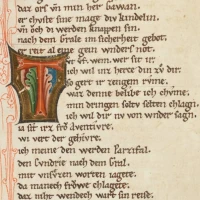 daz ors vn min her Gawan.
er chuste sine mage div kindelin.
vn och di werden knappen sin.
nach dem Grale im sicherheit gebot.
er reit al eine gein wnders not.
ich wil inz herce hin zv dir.
so gert ir zengem rvme.
waz denne belibe ich chvme.
min dringen soltv selten chlagn.
ich wil dir nv von wnder sagn.
ia sit irz fro aventivre.
wi vert der gehivre.
ich meine den werden Parzifal.
den Cvndrie nach dem Gral.
mit vnsvzen worten iagete.
da manech frowe chlagete.
daz niht wendech wart sin reise.